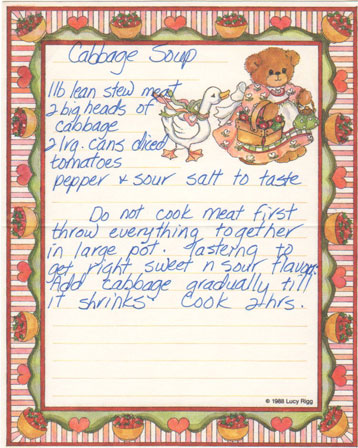 Cabbage Soup
1lb lean stew meat
2 big heads of
cabbage
2 lrg. cans diced
tomatoes
pepper & sour salt to taste
Do not cook meat first
throw everything together
in large pot. Tastering to
get right sweet n sour flavor.
Add cabbage gradually till
it shrinks Cook 2hrs.
© 1988 Lucy Rigg